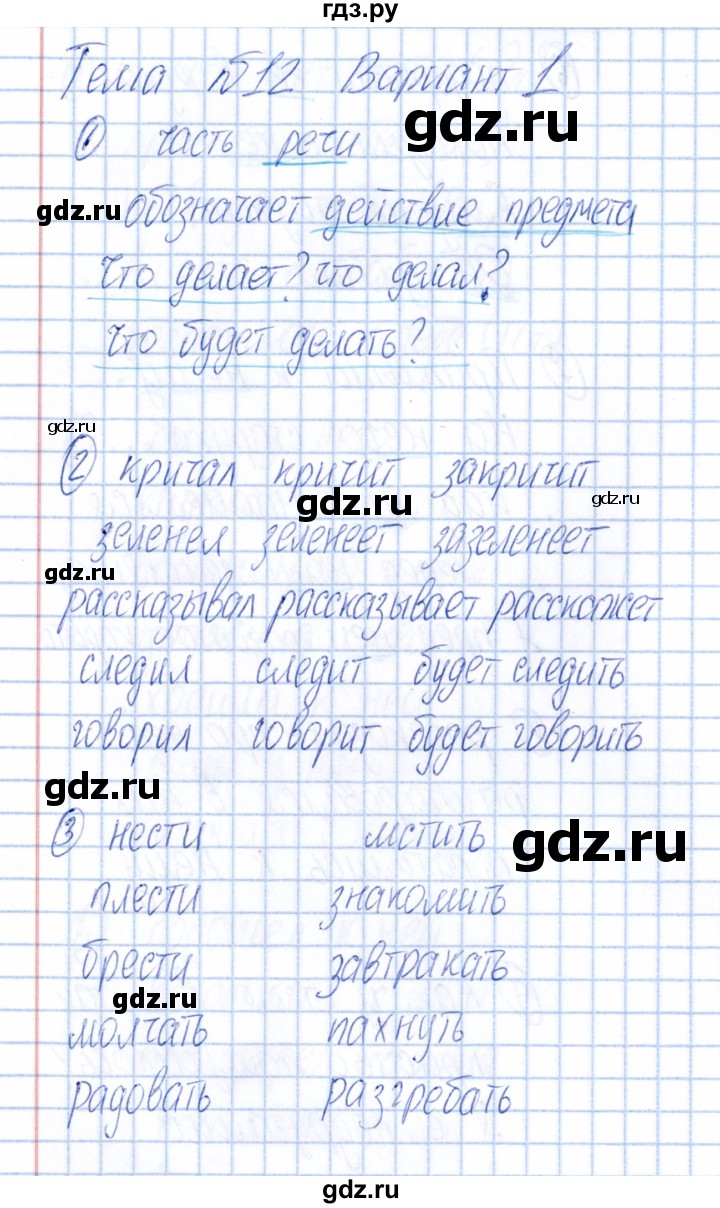 гдз.ру
Тема №12 Вариант 1
gdz.ru
① часть речи
gdz.ru
обозначает действие предмета
что делает? что делал?
что будет делать?
gdz.ru
② кричал кричит закричит
gdz.ru
gdz.ru
зеленел зеленеет зазеленеет
gdz.ru
рассказывал рассказывает расскажет
следил следит будет следить
говорил говорит будет говорить
gdz.ru
③ нести мстить
gdz.ru
плести знакомить
брести завтракать
gdz.ru
молчать пахнуть
радовать разгребать
gdz.ru